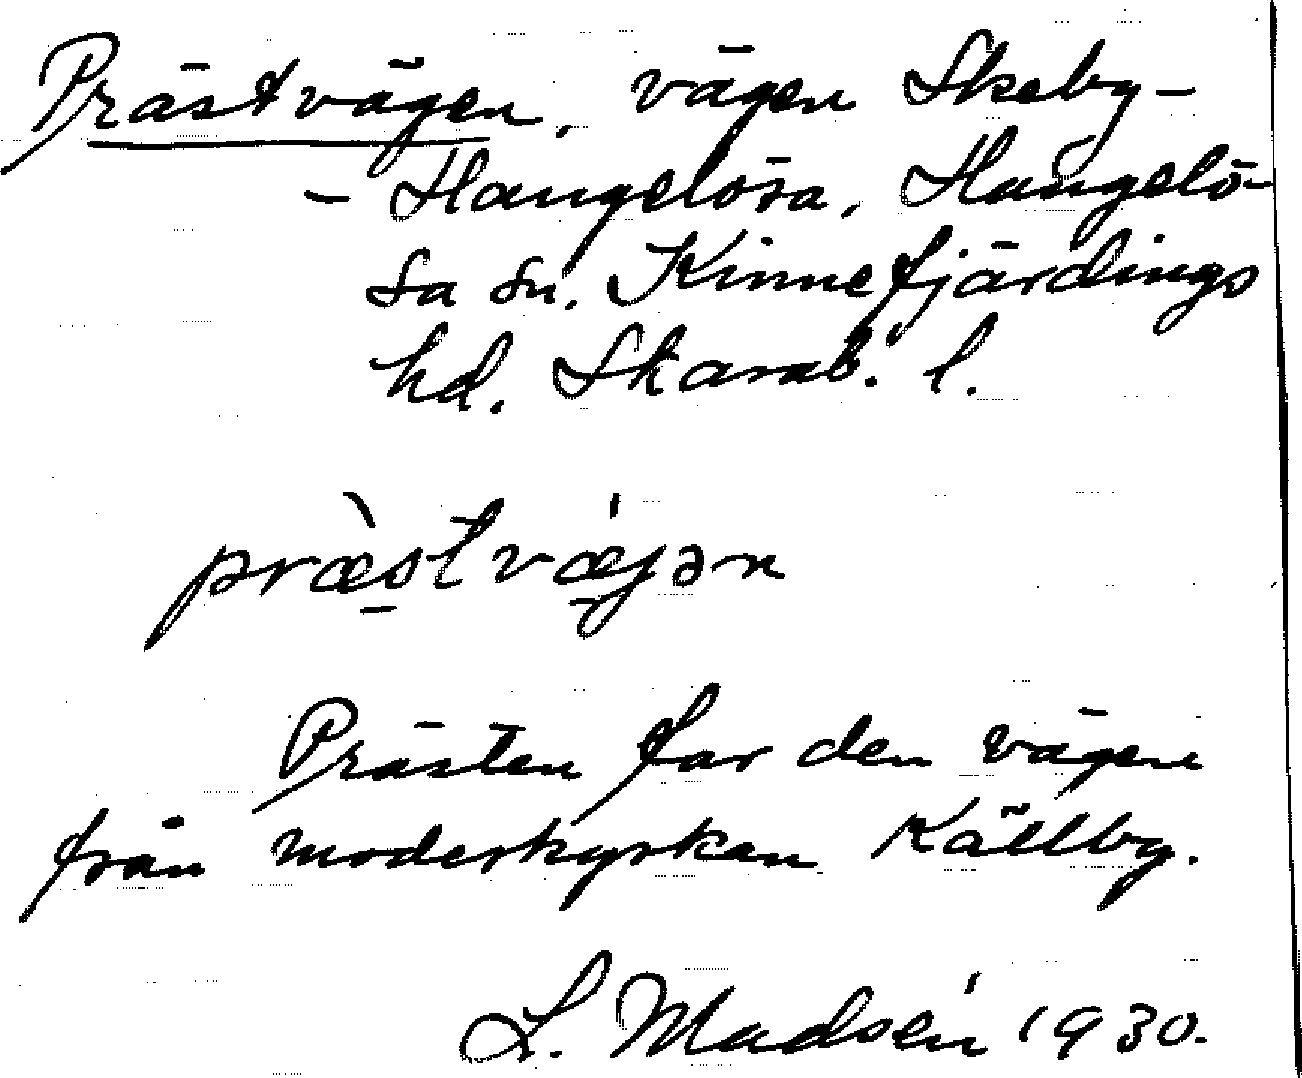 Prästvägen, vägen Skeby-
- Hangelösa, Hangelö-
sa sn. Kinnefjärdings
hd. Skarab. l.
præ̀stvǽjən
Prästen far den vägen
från moderkyrkan Källby.
L. Madsén 1930.